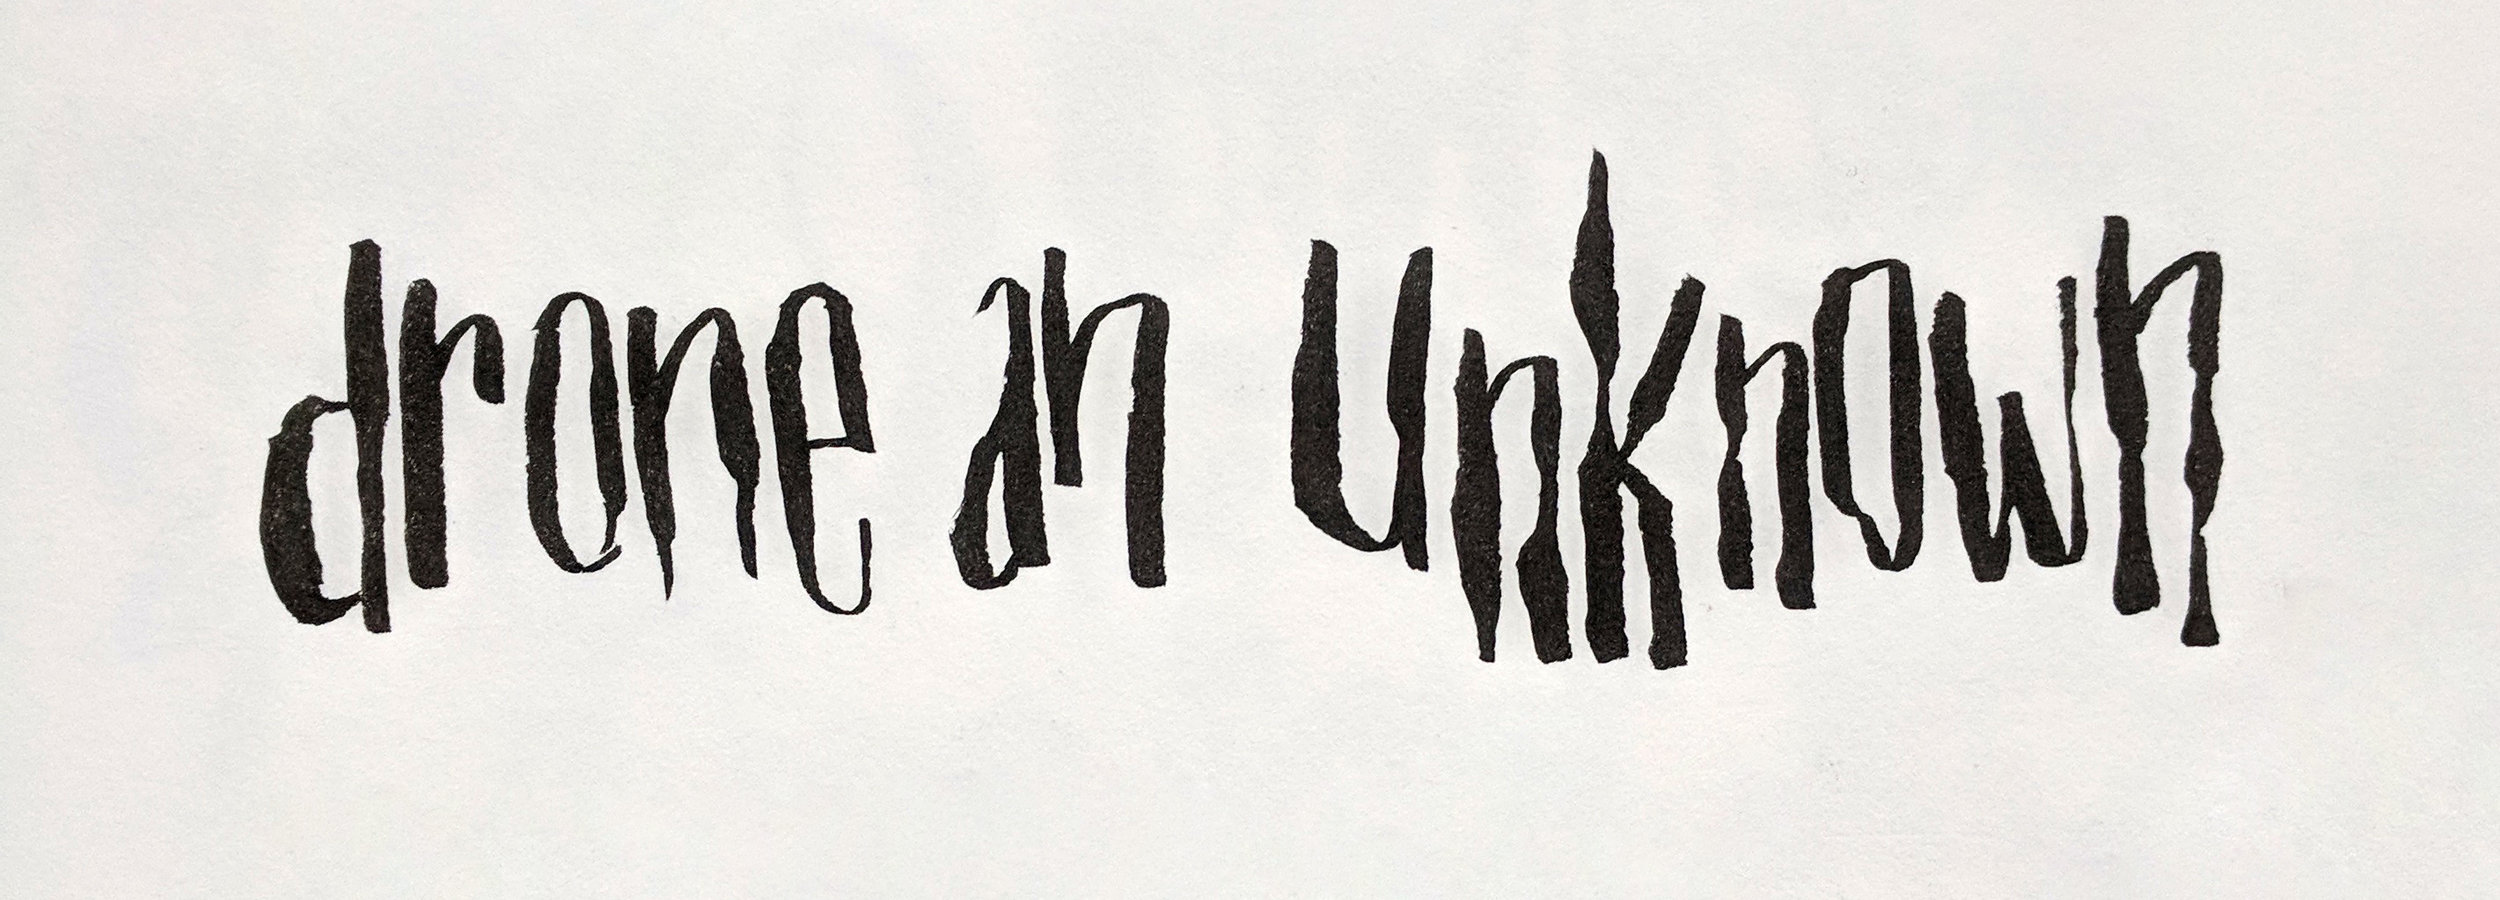 drone an unknown